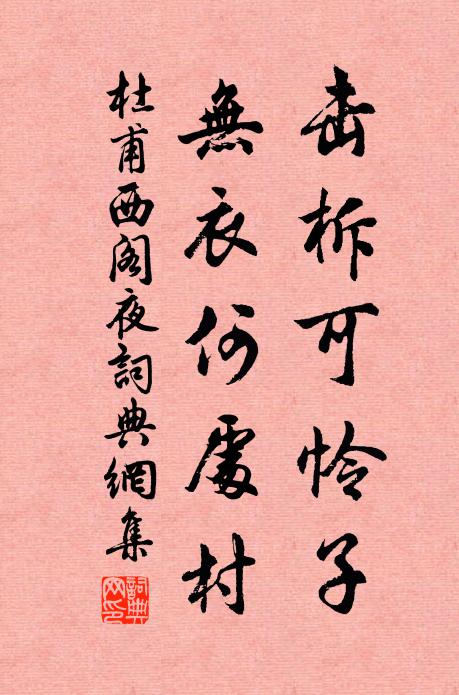 击柝可怜子
無衣何處村
杜甫西阁夜詞典網集
詞典網印